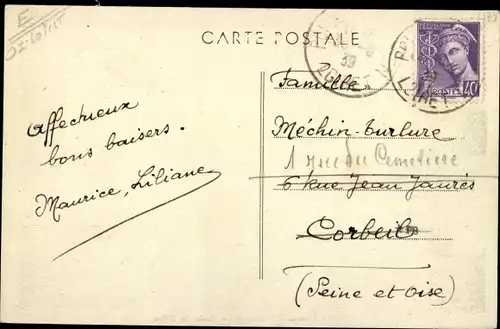 E
CARTE POSTALE
39
LOIRET
POSTES 40
Famille
Méchin-Turlure
1 rue du Cimetière
6 Rue Jean Jaurès
Corbeil
(Seine et Oise)
Affectueux
bons baisers.
Maurice, Liliane